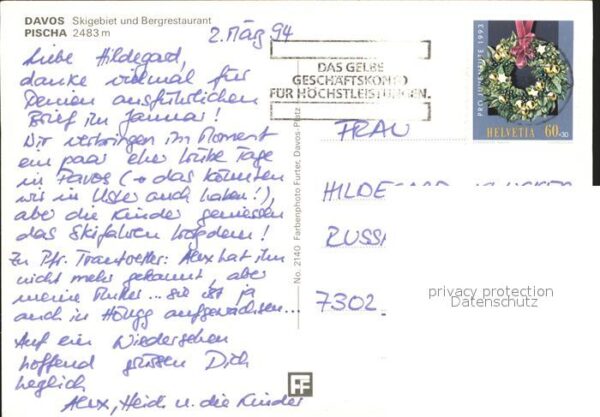 DAVOS Skigebiet und Bergrestaurant
PISCHA 2483 m
2. März 94
Liebe Hildegard,
danke vielmal für
Deinen ausführlichen
Brief im Januar!
Wir verbringen im Moment
ein paar eher trübe Tage
in Davos (→ das könnten
wir in Uster auch haben!),
aber die Kinder geniessen
das Skifahren trotzdem!
Zu Pfr. Trautvetter: Alex hat ihn
nicht mehr gekannt, aber
meine Mutter... sie ist ja
auch in Höngg aufgewachsen...
Auf ein Wiedersehen
hoffend grüssen Dich
herzlich
Alex, Heidi u. die Kinder
No. 2140 Farbenphoto Furter, Davos-Platz
FF
DAS GELBE
GESCHÄFTSKONTO
FÜR HÖCHSTLEISTUNGEN.
PRO JUVENTUTE 1993
HELVETIA 60+30
FRAU
HILDEGARD
7302
privacy protection
Datenschutz